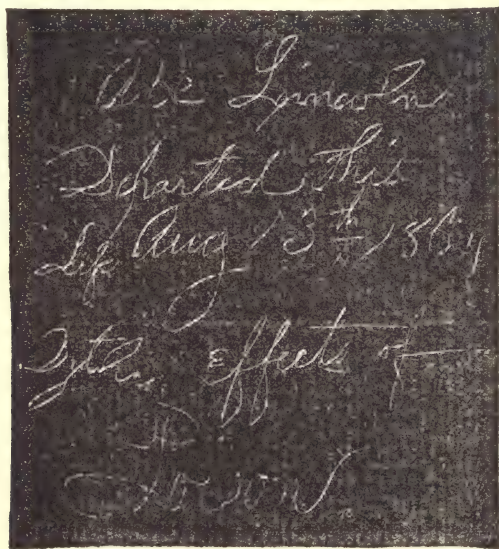 Abe Lincoln
Departed this
Life Aug 13th 1864
By the effects of
Poison